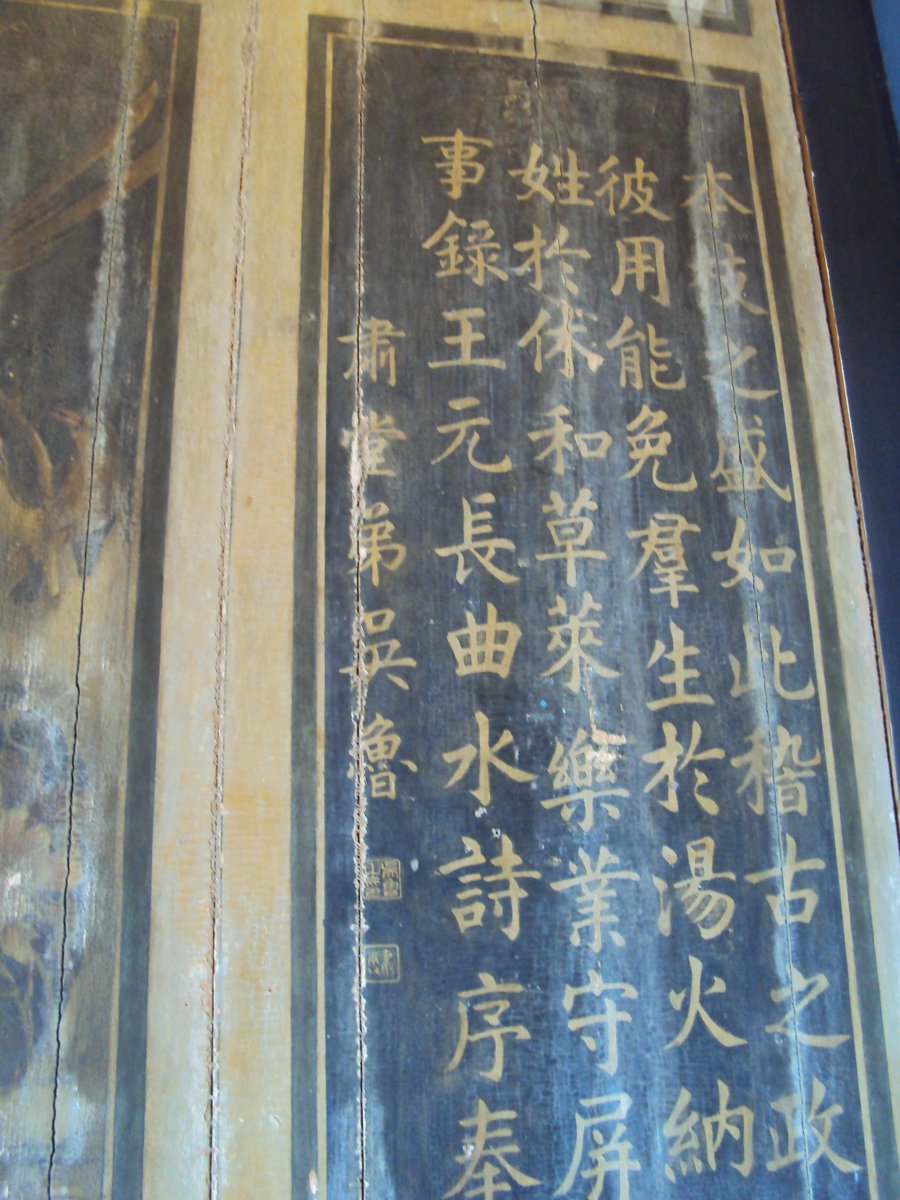 本枝之盛如此稽古之政
彼用能免羣生於湯火納
姓於休和草萊樂業守屏
事錄王元長曲水詩序奉
肅堂弟吳魯